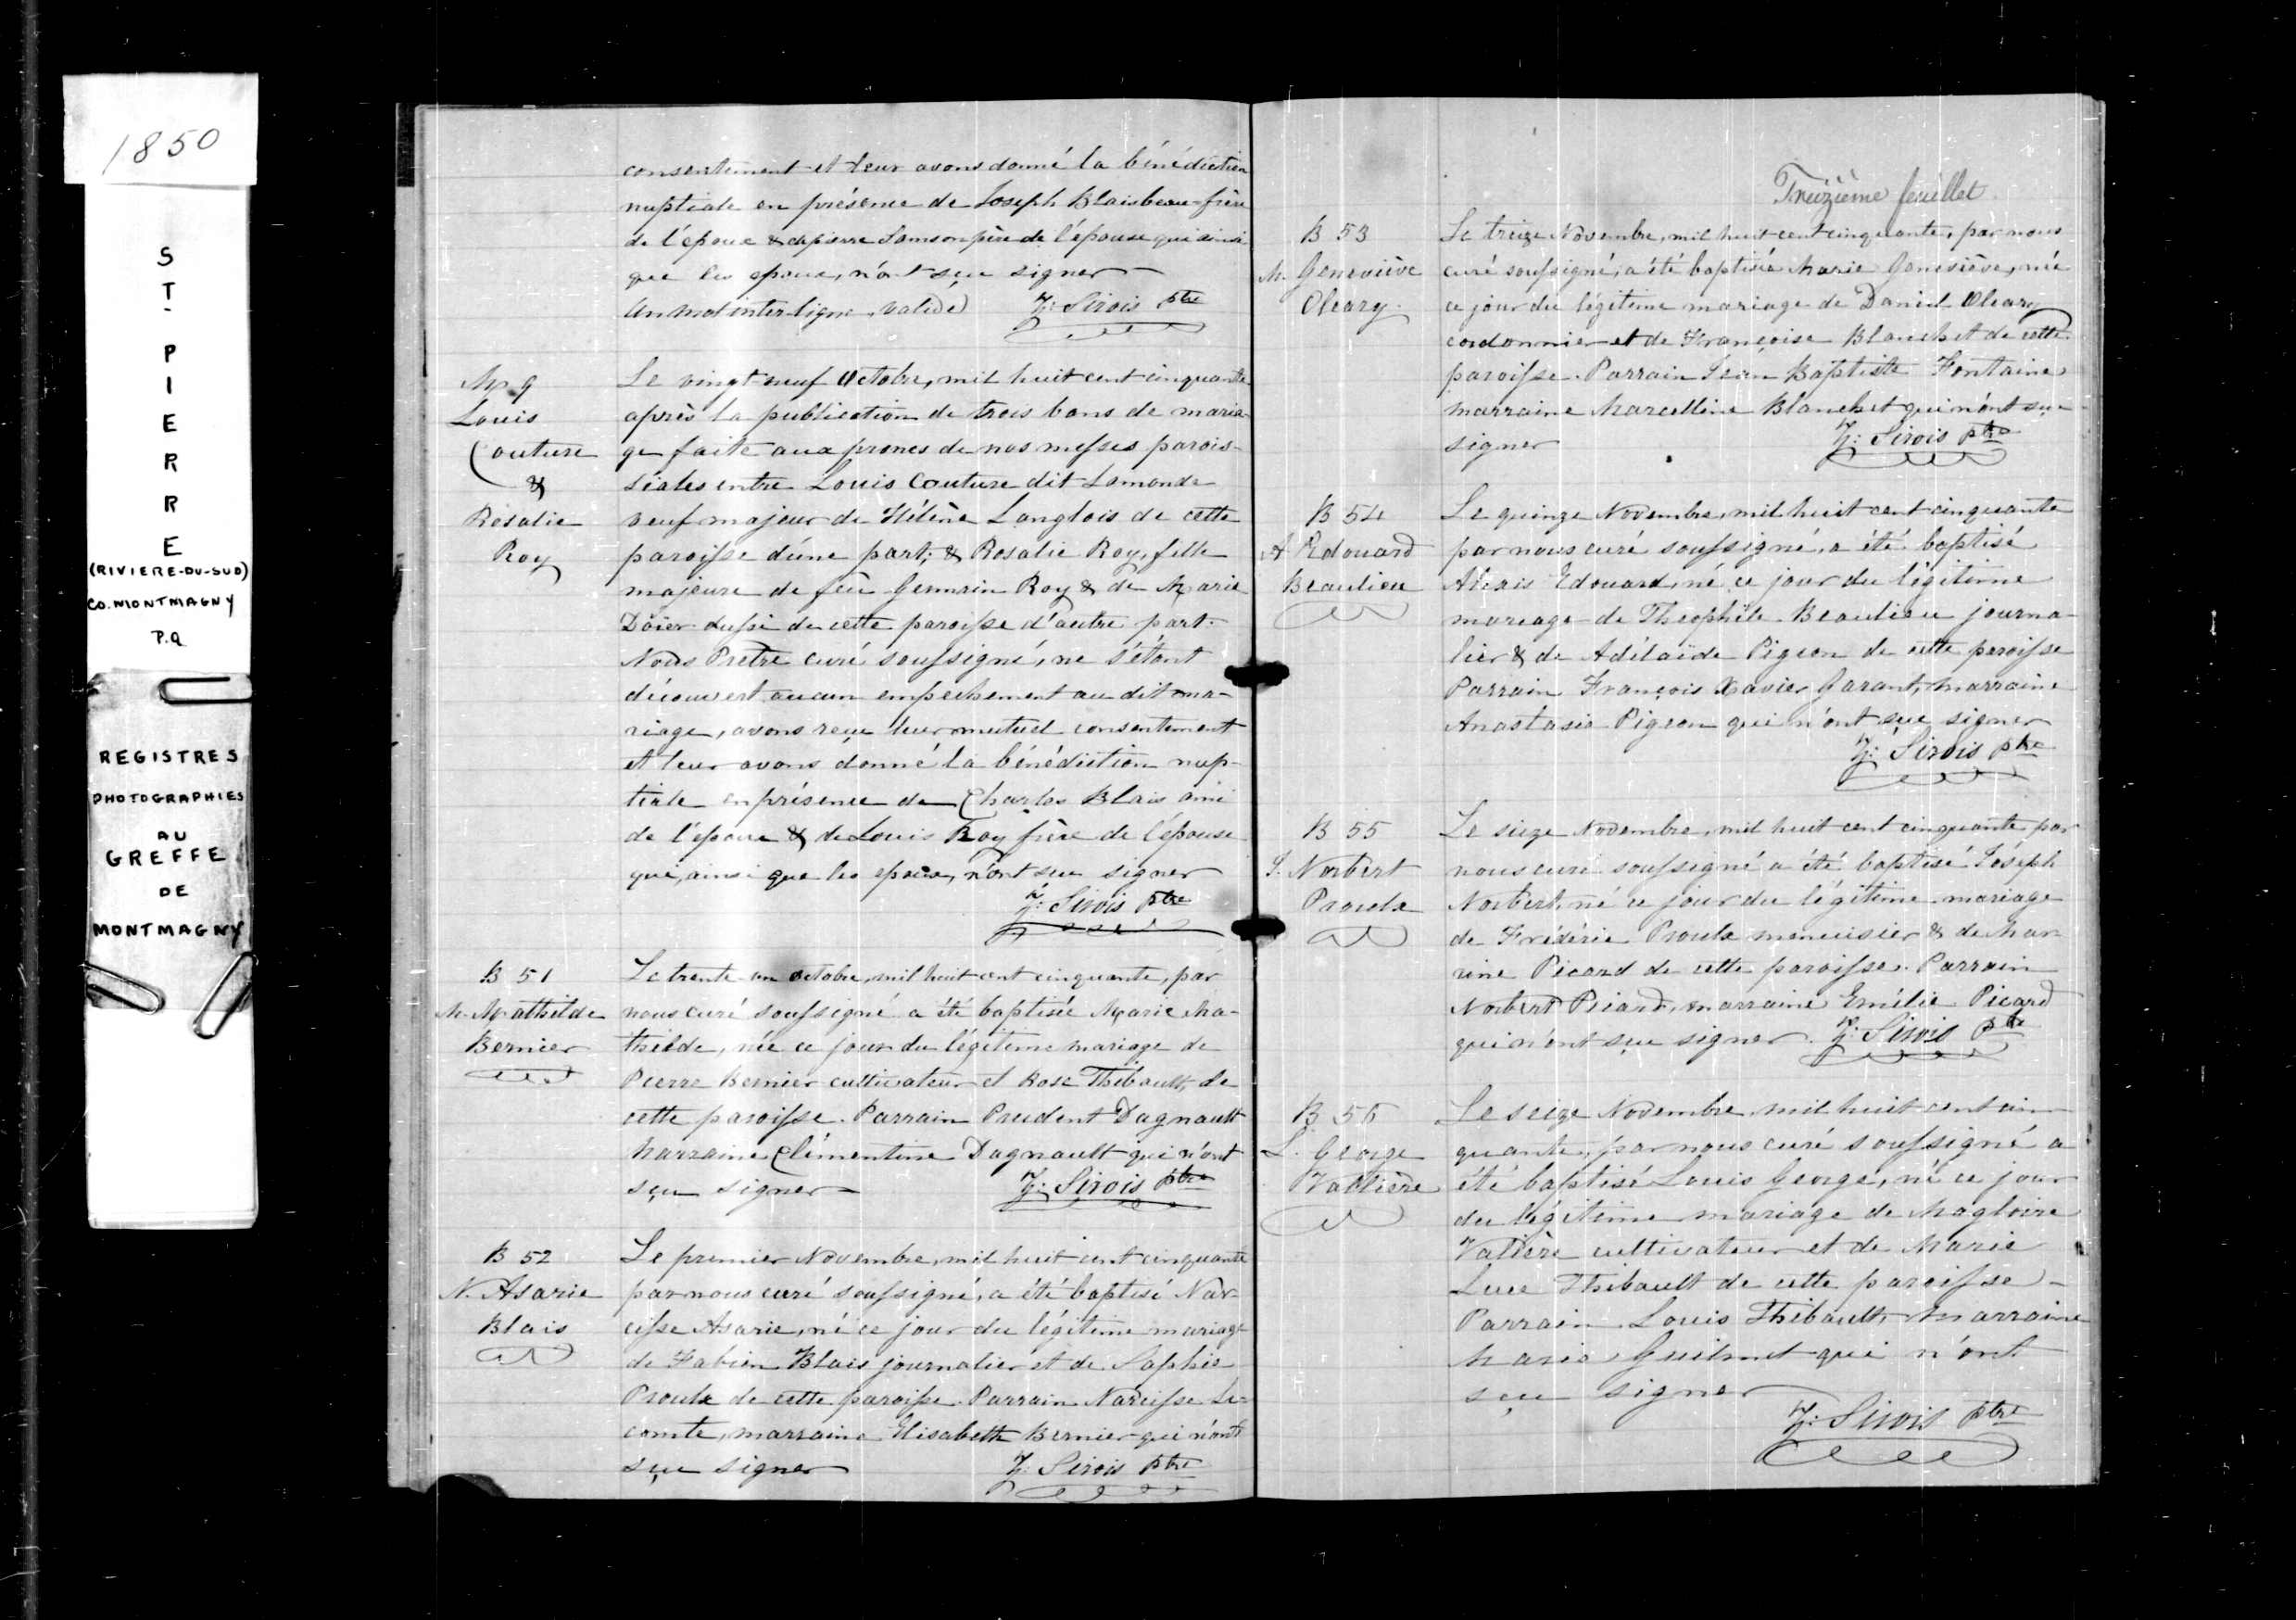 1850
ST. PIERRE
(RIVIERE-DU-SUD)
CO. MONTMAGNY
P.Q
REGISTRES
PHOTOGRAPHIES
AU
GREFFE
DE
MONTMAGNY
consentement et leur avons donné la bénédiction
nuptiale en présence de Joseph Blais beau-frère
de l'époux & de pierre Samson père de l'épouse qui ainsi
que les epoux, n'ont sçu signer
un mot interligne valide) Z: Sirois ptre
M 9
Louis
Couture
&
Rosalie
Roy
Le vingt neuf Octobre, mil huit cent cinquante
après la publication de trois bans de maria-
ge faite aux prones de nos messes parois-
siales entre Louis Couture dit Lamonde
veuf majeur de Hélène Langlois de cette
paroisse d'une part; & Rosalie Roy, fille
majeure de feu Germain Roy & de Marie
Doier aussi de cette paroisse d'autre part.
Nous Pretre curé soussigné, ne s'étant
découvert aucun empechement au dit ma-
riage, avons reçu leur mutuel consentement
et leur avons donné la bénédiction nup-
tiale en présence de Charles Blais ami
de l'époux & de Louis Roy frère de l'épouse
qui, ainsi que les epoux, n'ont scu signer
Z: Sirois Ptre
B 51
M. Mathilde
Bernier
Le trente un octobre, mil huit cent cinquante, par
nous curé soussigné a été baptisée Marie Ma-
thilde, née ce jour du légitime mariage de
Pierre Bernier cultivateur et Rose Thibault, de
cette paroisse. Parrain Prudent Dagnault
Marraine Clémentine Dagnault qui n'ont
sçu signer Z: Sirois Ptre
B 52
N. Asarie
Blais
Le premier Novembre, mil huit cent cinquante
par nous curé soussigné, a été baptisé Nar-
cisse Asarie, né ce jour du légitime mariage
de Fabien Blais journalier et de Sophie
Proulx de cette paroisse. Parrain Narcisse Le-
comte, marraine Elisabeth Bernier qui n'ont
sçu signer Z: Sirois Ptre
Treizième feuillet
B 53
M. Geneviève
Oleary
Le treize Novembre, mil huit cent cinquante, par nous
curé soussigné, a été baptisée Marie Geneviève, née
ce jour du légitime mariage de Daniel Oleary
cordonnier et de Françoise Blanchet de cette
paroisse. Parrain Jean Baptiste Fontaine
marraine Marcelline Blanchet qui n'ont sçu
signer Z: Sirois Ptre
B 54
A Edouard
Beaulieu
Le quinze Novembre, mil huit cent cinquante
par nous curé soussigné, a été baptisé
Alexis Edouard, né ce jour du légitime
mariage de Theophile Beaulieu journa-
lier & de Adélaïde Pigeon de cette paroisse
Parrain François Xavier Garant, marraine
Anastasie Pigeon qui n'ont sçu signer
Z: Sirois ptre
B 55
J. Norbert
Proulx
Le sieze Novembre, mil huit cent cinquante par
nous curé soussigné a été baptisé Joseph
Norbert, né ce jour du légitime mariage
de Frédéric Proulx menuisier & de Mar-
rine Picard de cette paroisse. Parrain
Norbert Picard, marraine Emélie Picard
qui n'ont sçu signer. Z: Sirois Ptre
B 56
L. George
Vallière
Le seize Novembre, mil huit cent cin-
quante, par nous curé soussigné a
été baptisé Louis George, né ce jour
du légitime mariage de Magloire
Valière cultivateur et de Marie
Luce Thibault de cette paroisse
Parrain Louis Thibault, Marraine
Marie Guilmet qui n'ont
sçu signer
Z: Sirois Ptre